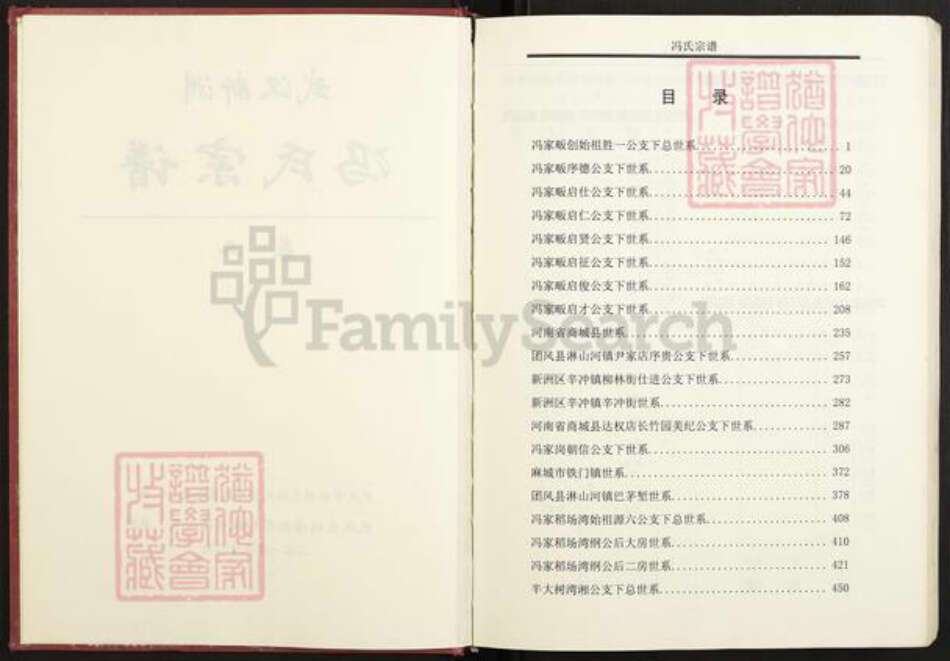 冯氏宗谱
目 录
冯家畈创始祖胜一公支下总世系 1
冯家畈序德公支下世系 20
冯家畈启仕公支下世系 44
冯家畈启仁公支下世系 72
冯家畈启贤公支下世系 146
冯家畈启征公支下世系 152
冯家畈启俊公支下世系 162
冯家畈启才公支下世系 208
河南省商城县世系 235
团风县淋山河镇尹家店序贵公支下世系 257
新洲区辛冲镇柳林街仕进公支下世系 273
新洲区辛冲镇辛冲街世系 282
河南省商城县达权店长竹园美纪公支下世系 287
冯家岗朝信公支下世系 306
麻城市铁门镇世系 372
团风县淋山河镇巴茅堑世系 378
冯家稻场湾始祖源六公支下总世系 408
冯家稻场湾纲公后大房世系 410
冯家稻场湾纲公后二房世系 421
半大柯湾湘公支下总世系 450
FamilySearch
武汉新洲
冯氏宗谱
猶他家
譜學會
收藏
猶他家
譜學會
收藏